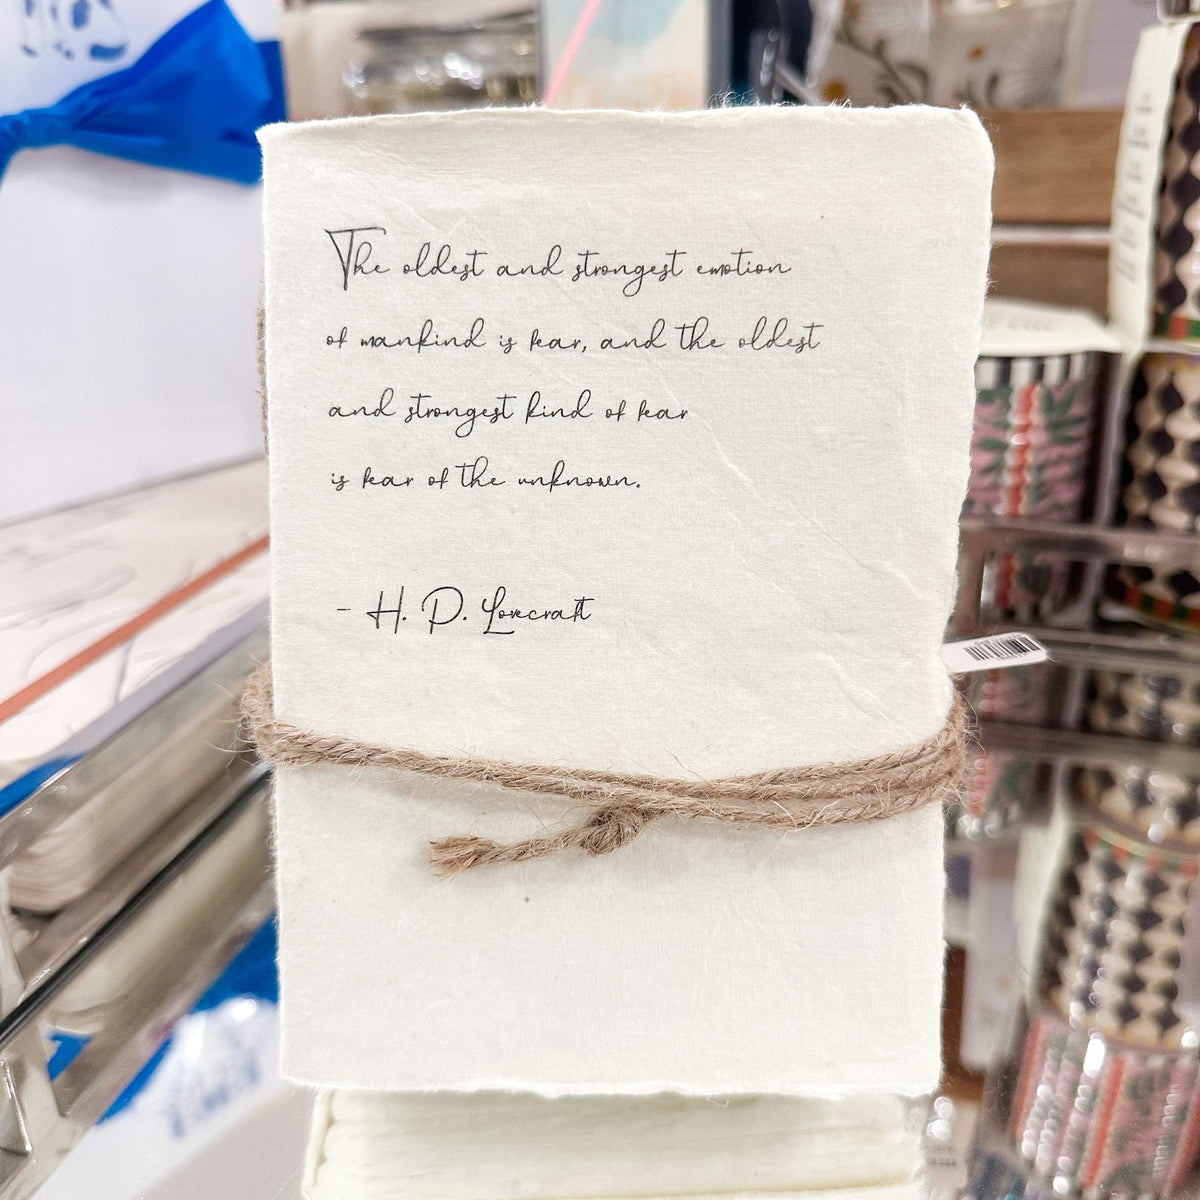 The oldest and strongest emotion
of mankind is fear, and the oldest
and strongest kind of fear
is fear of the unknown.
- H. P. Lovecraft